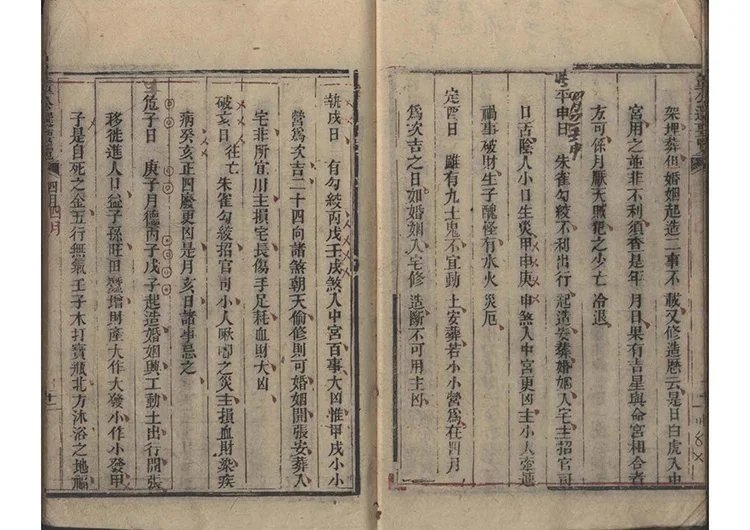 架埋葬但婚姻起造二事不載又修造曆云是日白虎入中
宮用之並非不利須查是年月日果有吉星與命宮相合者
方可修月厭天賊犯之少亡冷退
平申日朱雀勾絞不利出行起造安葬婚姻入宅主招官司
日古陰人小口生災甲申庚申煞入中宮更凶主小人牽連
禍事破財生子醜怪有水火災厄
定酉日雖有九土鬼不宜動土安葬若小小營為在四月
為次吉之日如婚姻入宅修造斷不可用主凶
執戌日有勾絞丙戌壬戌煞入中宮百事大凶惟甲戌小小
營為次吉二十四向諸煞朝天偷修則可婚姻開張安葬入
宅非所宜用主損宅長傷手足耗血財大凶
破亥日往亡朱雀勾絞招官司小人之災主損血財染疾
病癸亥正四廢更凶是月亥日諸事忌之
危子日庚子月德丙子戊子起造婚姻興工動土出行開張
移徙進人口益子孫旺田蠶增財產大作大發小作小發甲
子是自死之金五行無氣壬子木打寶瓶北方沐浴之地福
四月